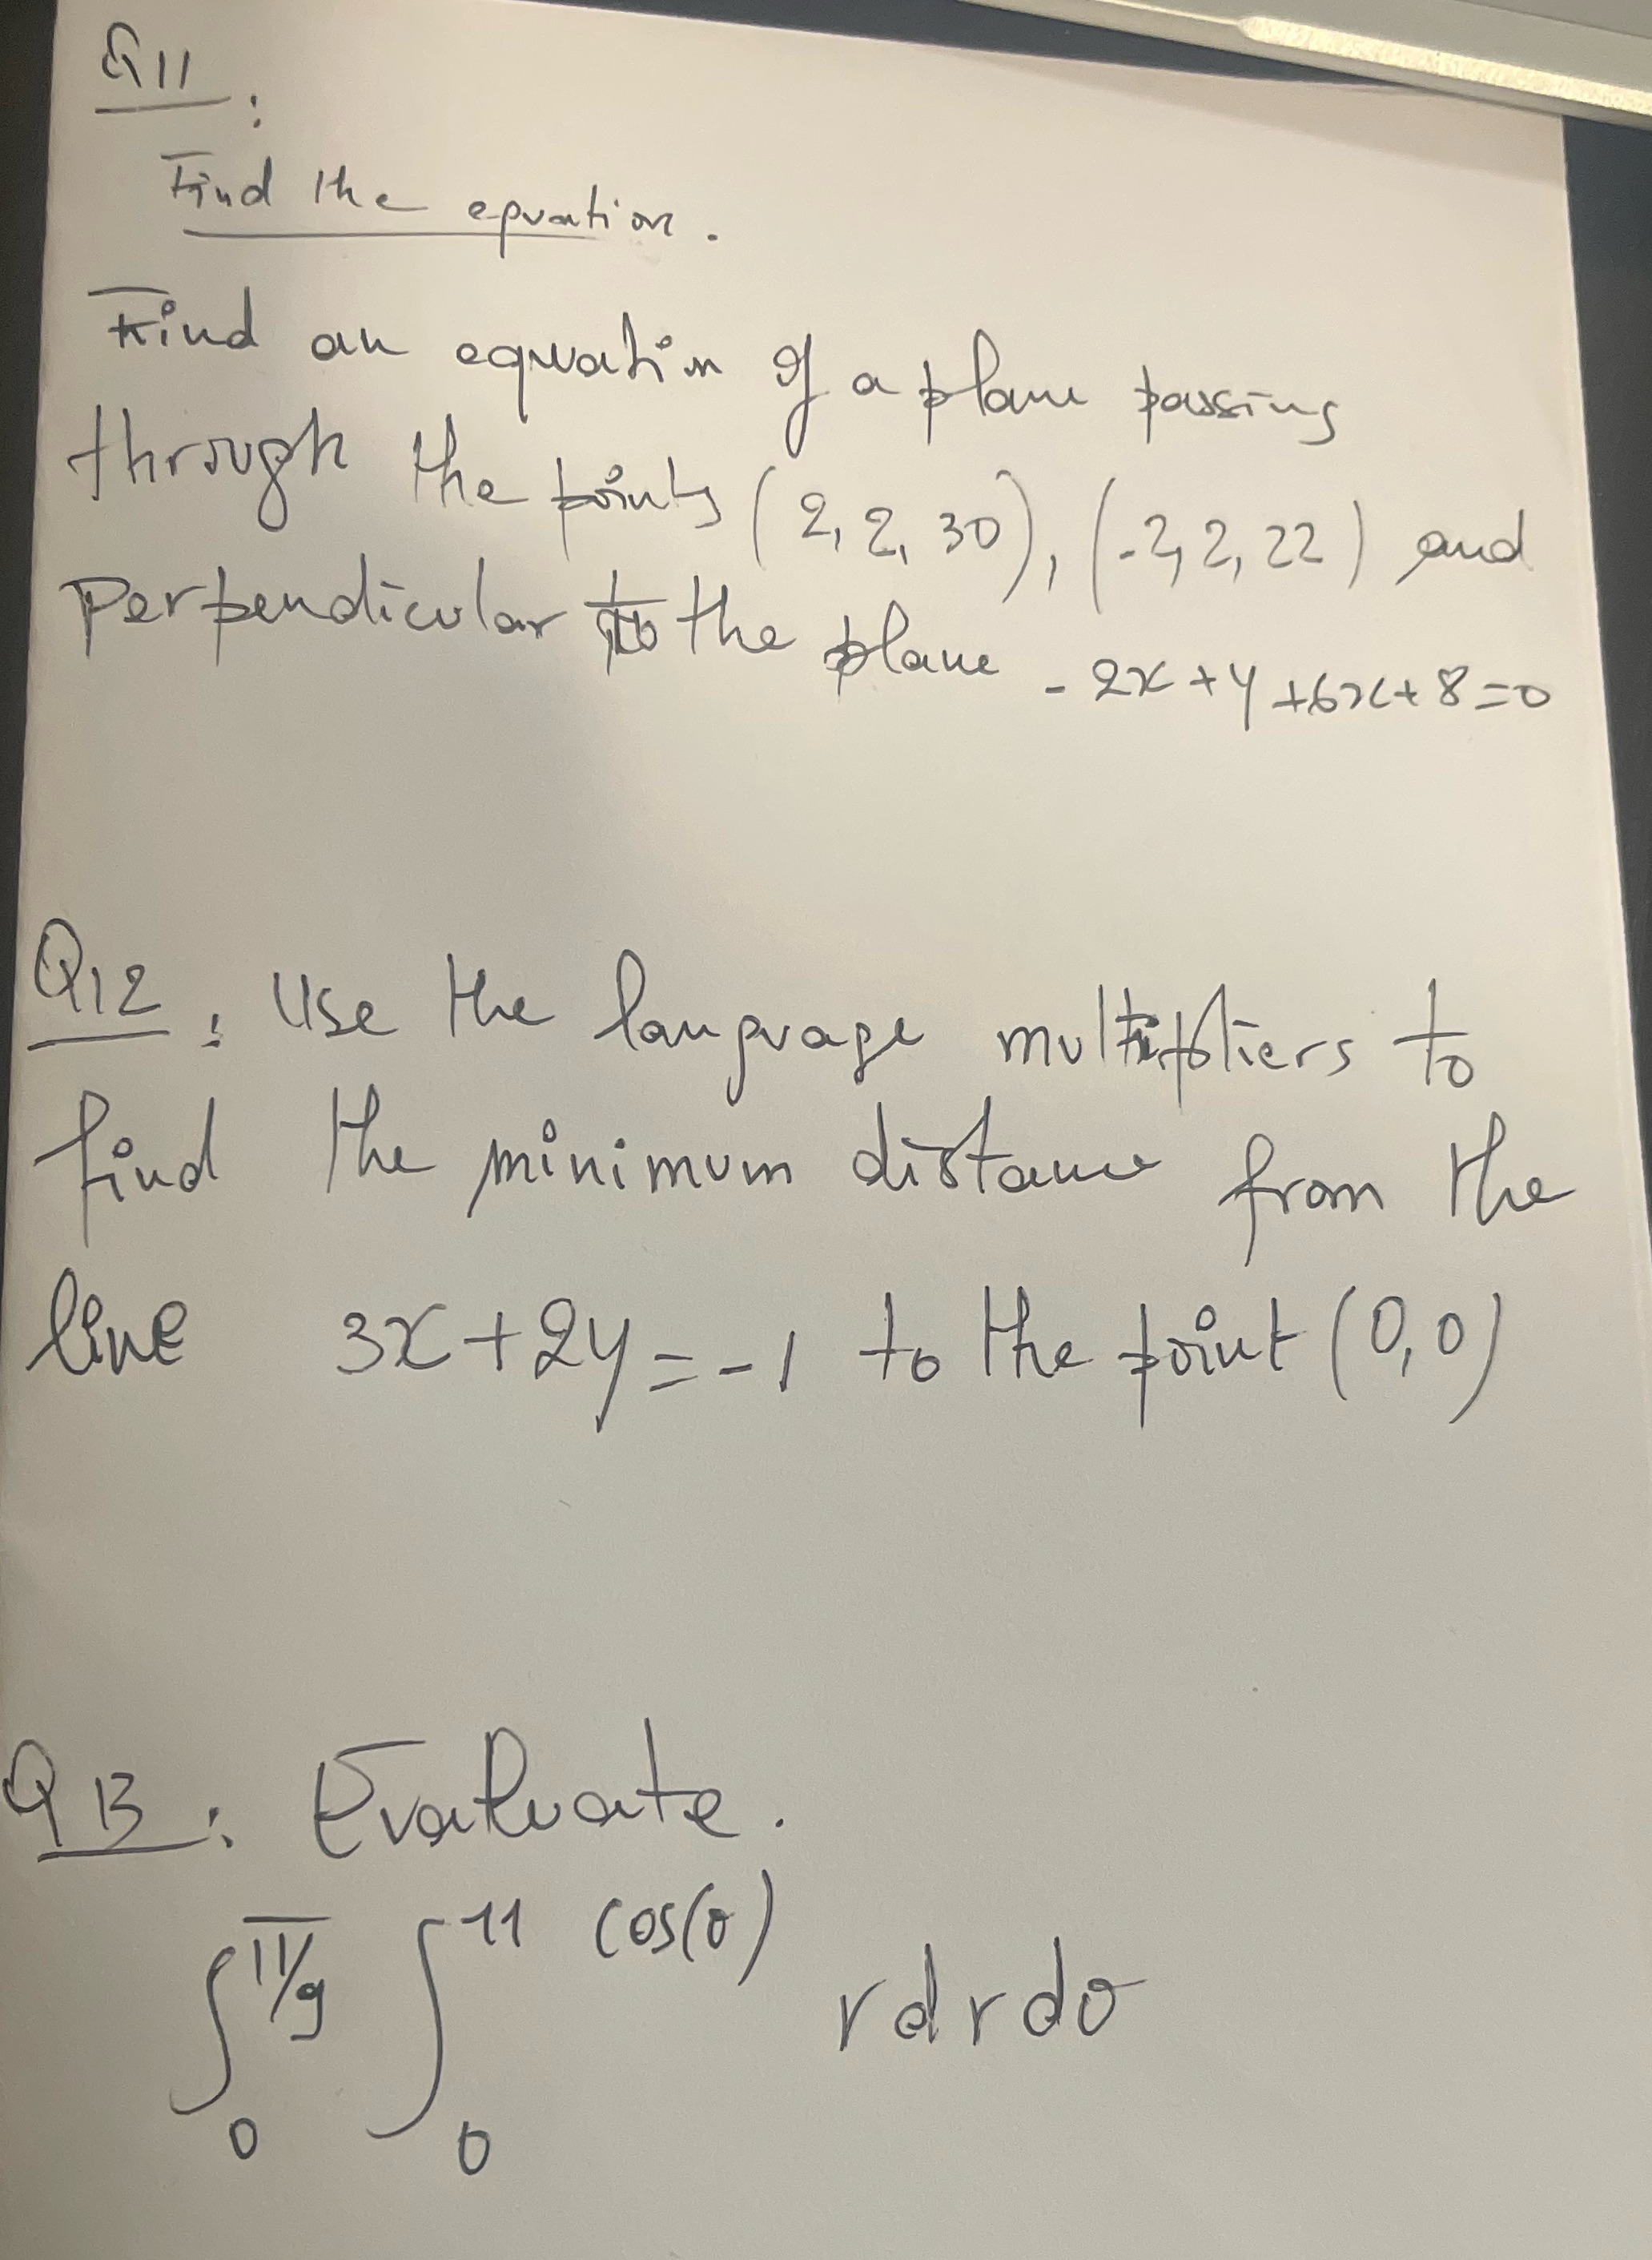 Q11:
Find the equation.
Find an equation of a plane passing
through the points (2, 2, 30), (-2, 2, 22) and
perpendicular to the plane -2x + y + 6x + 8 = 0
Q12: Use the language multipliers to
find the minimum distance from the
line 3x + 2y = -1 to the point (0, 0)
Q13: Evaluate.
∫₀^(π/9) ∫₀^(11 cos(θ)) r dr dθ